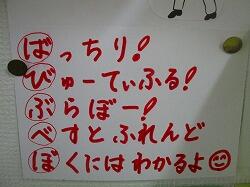 ばっちり!
びゅーてぃふる!
ぶらぼー!
べすとふれんど
ぼくにはわかるよ